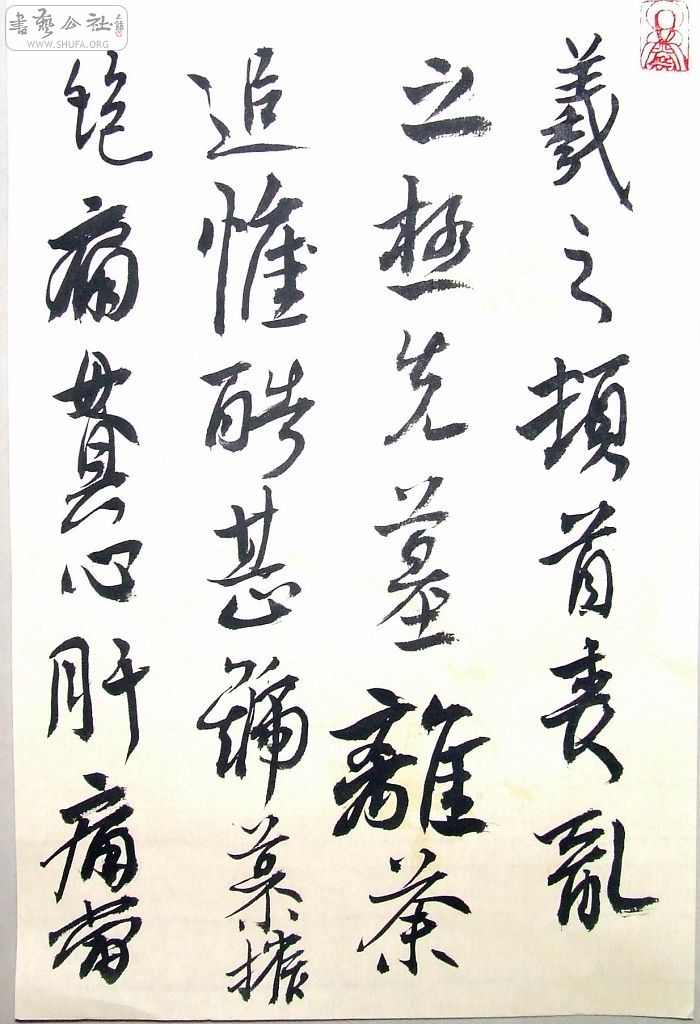 羲之頓首喪亂
之極先墓離荼
追惟酷甚號慕摧
絶痛貫心肝痛當
書藝公社
WWW.SHUFA.ORG